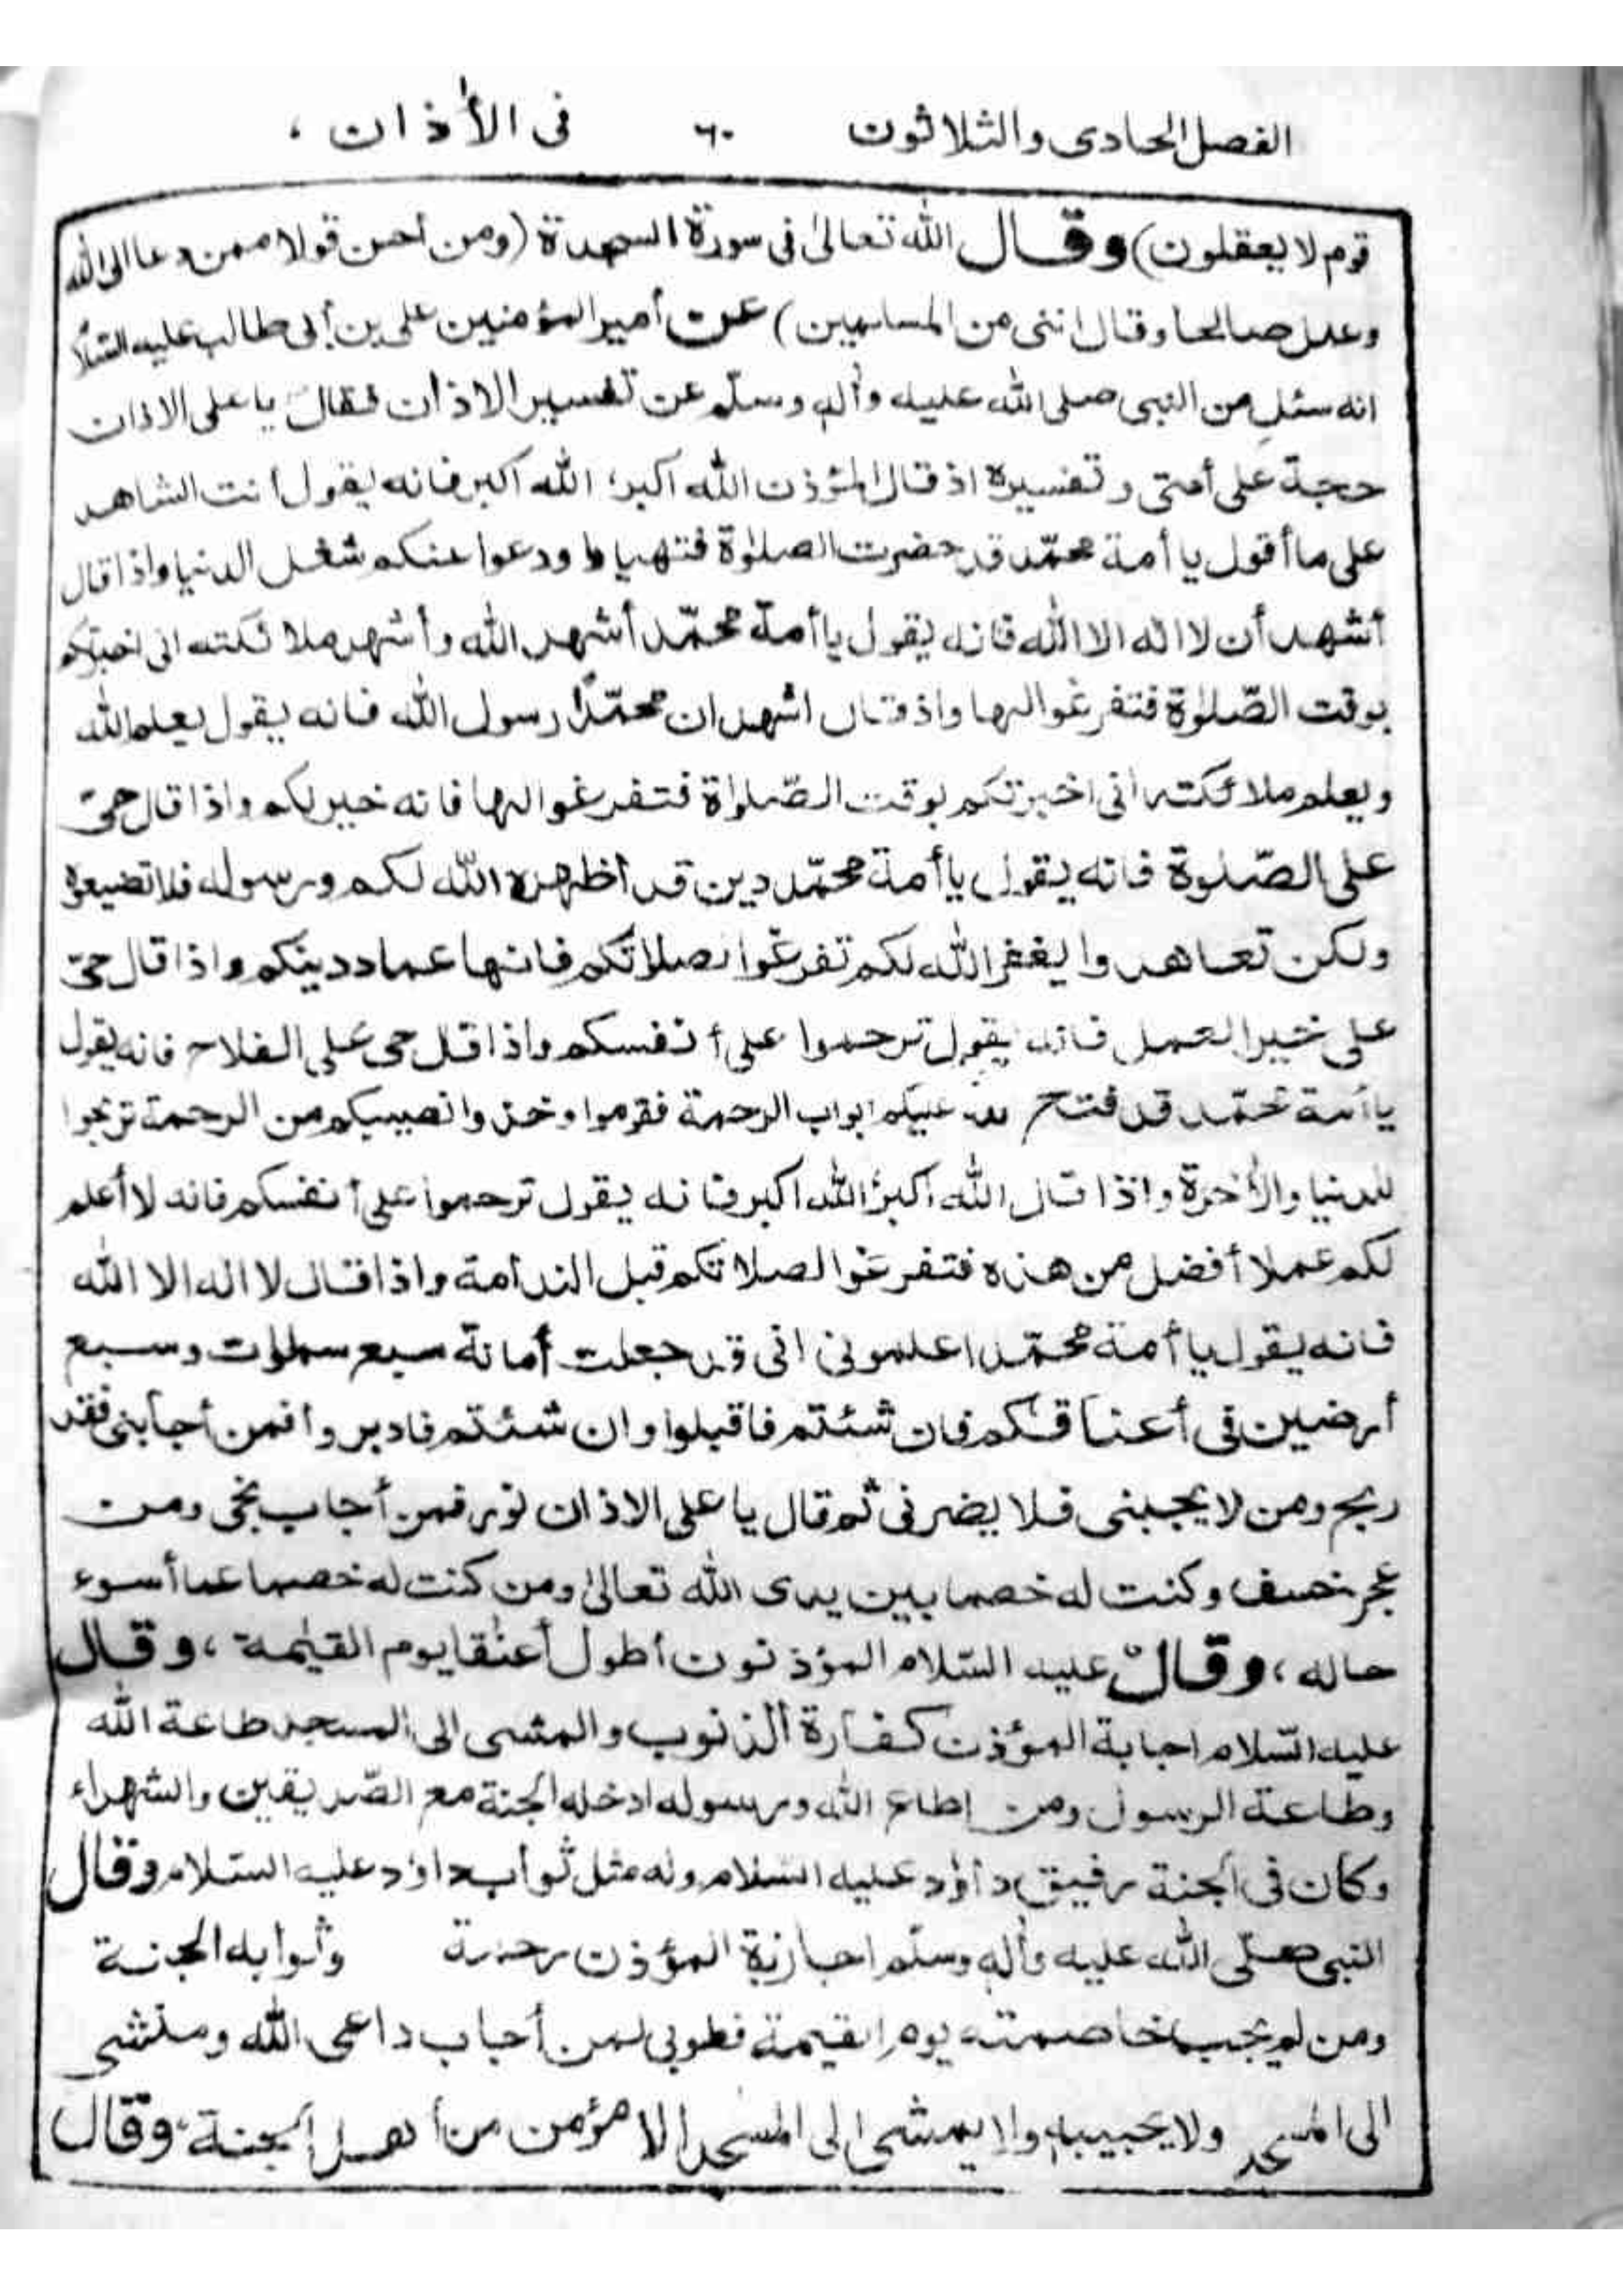 الفصل الحادى والثلاثون ٦٠ فى الأذان ،
قوم لا يعقلون) وقال الله تعالىٰ فى سورة السجدة (ومن أحسن قولا ممن دعا الى الله
وعمل صالحا وقال اننى من المسلمين) عن أمير المؤمنين على بن أبى طالب عليه السّلام
انه سئل من النبى صلى الله عليه وأله وسلّم عن تفسير الاذان فقال يا على الاذان
حجة على أمتى وتفسيره اذ قال المؤذن الله اكبر، الله اكبر فانه يقول أنت الشاهد
على ما أقول يا أمة محمّد قد حضرت الصلوٰة فتهياوا ودعوا عنكم شغل الدنيا واذا قال
أشهد أن لا اله الا الله فانه يقول يا أمة محمّد أشهد الله وأشهد ملائكته انى اخبرتكم
بوقت الصّلوٰة فتفرغوا لها واذ قال اشهد ان محمّدًا رسول الله فانه يقول يعلم الله
ويعلم ملائكته انى اخبرتكم بوقت الصّلوٰة فتفرغوا لها فانه خير لكم واذا قال حىّ
على الصّلوة فانه يقول يا أمة محمّد دين قد أظهره الله لكم ورسوله فلا تضيعوه
ولكن تعاهدوا يغفر الله لكم تفرغوا لصلاتكم فانها عماد دينكم واذا قال حىّ
على خير العمل فانه يقول ترحموا على أنفسكم واذا قل حى على الفلاح فانه يقول
يا أمة محمّد قد فتح الله عليكم ابواب الرحمة فقوموا وخذوا نصيبكم من الرحمة تربحوا
للدنيا والأخرة واذا قال الله اكبر الله اكبر فانه يقول ترحموا على أنفسكم فانه لا أعلم
لكم عملا أفضل من هذه فتفرغوا لصلاتكم قبل الندامة واذا قال لا اله الا الله
فانه يقول يا أمة محمّد اعلمونى انى قد جعلت أمانة سبع سمٰوات وسبع
أرضين فى أعناقكم فان شئتم فاقبلوا وان شئتم فادبروا فمن أجابنى فقد
ربح ومن لا يجبنى فلا يضرنى ثم قال يا على الاذان نور فمن أجاب نجى ومن
عجز خسف وكنت له خصما بين يدى الله تعالىٰ ومن كنت له خصما عما أسوء
حاله ، وقال عليه السّلام المؤذنون أطول أعنٰقا يوم القيٰمة ، وقال
عليه السّلام اجابة المؤذن كفارة الذنوب والمشى الى المسجد طاعة الله
وطاعة الرسول ومن اطاع الله ورسوله ادخله الجنة مع الصّديقين والشهداء
وكان فى الجنة رفيق داؤد عليه السّلام وله مثل ثواب داؤد عليه السّلام وقال
النبى صلّى الله عليه وأله وسلّم اجابة المؤذن رحمة وثوابه الجنة
ومن لم يجب خاصمته يوم القيمة فطوبى لمن أجاب داعى الله ومشى
الى المسجد ولا يجيبه ولا يمشى الى المسجد الا مؤمن من أهل الجنة، وقال